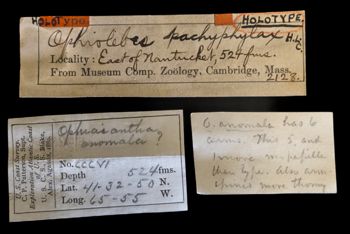 HOLOTYPE.
HOLOTYPE.
Ophiolebes pachyphylax H.L.C.
Locality: East of Nantucket, 524 fms.
From Museum Comp. Zoölogy, Cambridge, Mass.
2128.
U. S. Coast Survey,
C. P. Patterson, Supt.
Exploration of Atlantic Coast
of U. S.
U. S. C. S. Str. Blake,
Alex. Agassiz, 1880.
Ophiacantha
anomala?
No. CCCVI
Depth 524 fms.
Lat. 41-32-50 N.
Long. 65-55 W.
O. anomala has 6
arms. This 5, and
more m. papillae
than type. Also arm
spines more thorny